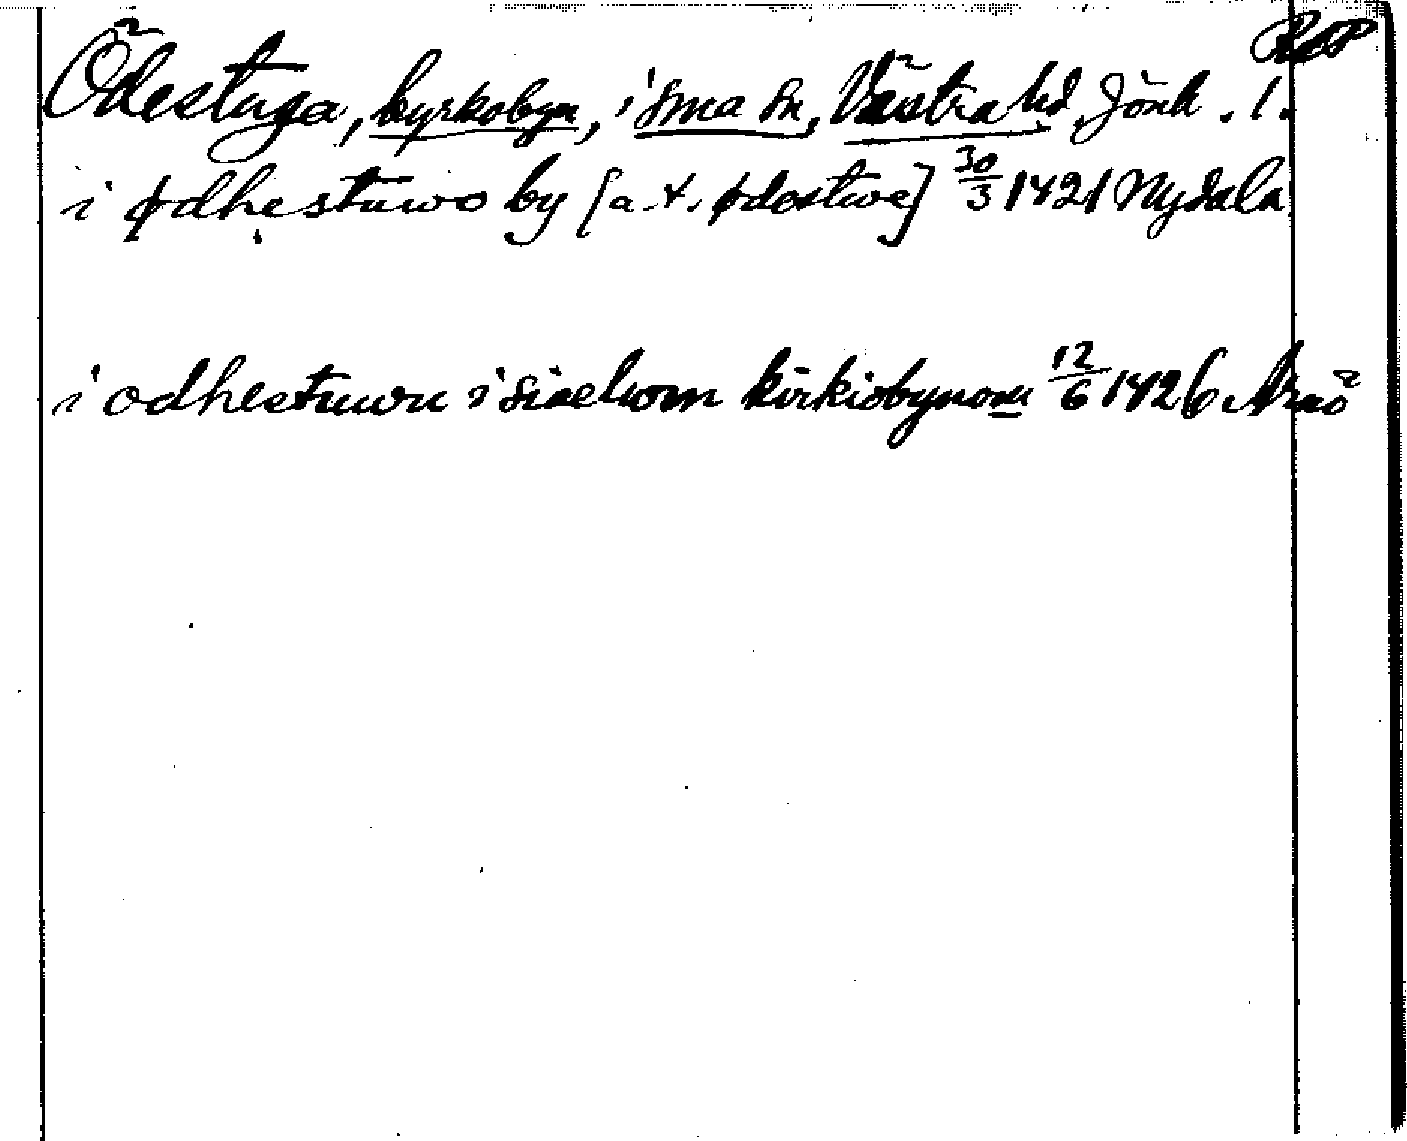 Ödestuga, kyrkobyn, i sma sn, Västra hd Jönk. l.
i ødhestuwo by [a.t. ødestwe] 30/3 1421 Nydala
i odhestuwu i siaelwom kirkiobynom 12/6 1426 Arnö